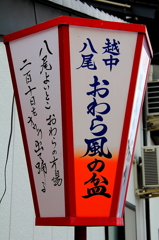 越中
八尾
おわら風の盆
八尾よいとこおわらの本場
二百十日をおわらで出て踊る